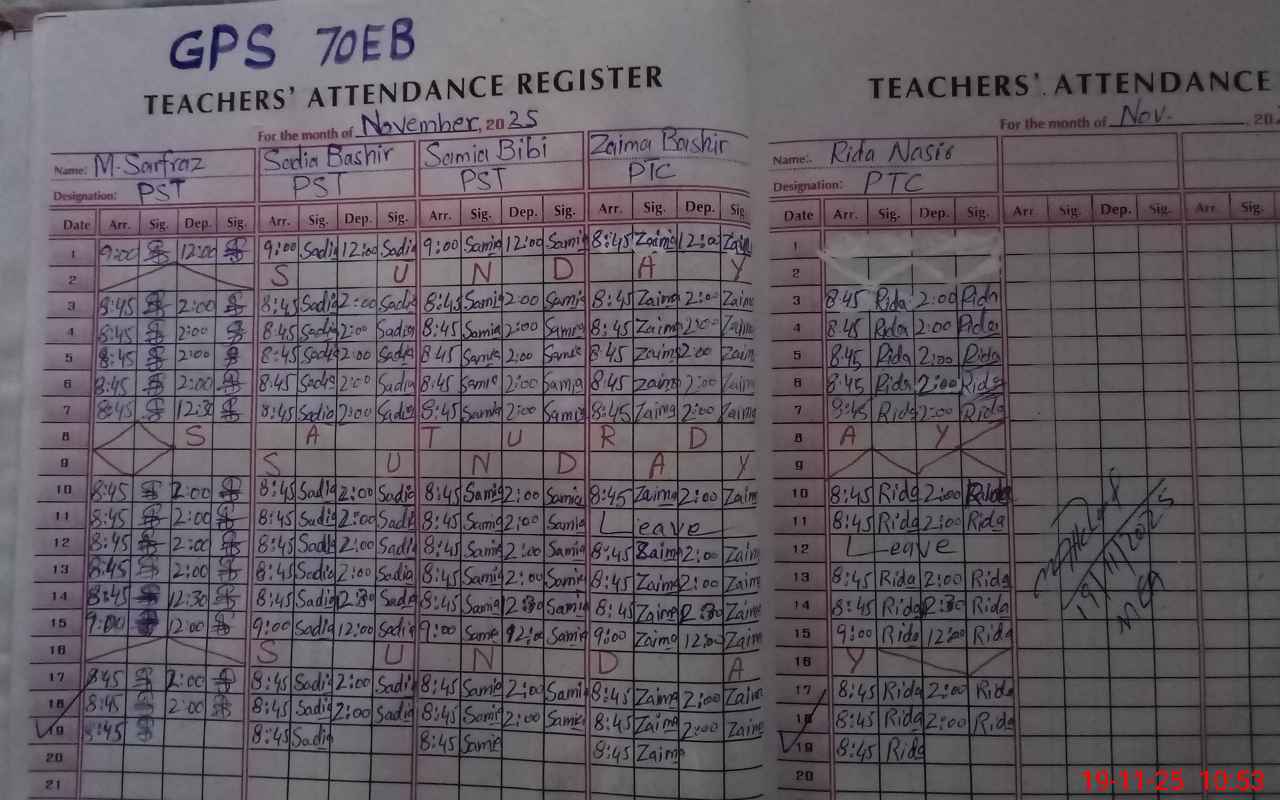 GPS 70EB
TEACHERS' ATTENDANCE REGISTER
For the month of November, 2025
Name: M-Sarfraz Sadia Bashir Samia Bibi Zaima Bashir
Designation: PST PST PST PTC
Date Arr. Sig. Dep. Sig. Arr. Sig. Dep. Sig. Arr. Sig. Dep. Sig. Arr. Sig. Dep. Sig
1 9:00 12:00 9:00 Sadia 12:00 Sadia 9:00 Samia 12:00 Samia 8:45 Zaima 12:00 Zaim
2 S U N D A Y
3 8:45 2:00 8:45 Sadia 2:00 Sadia 8:45 Samia 2:00 Samia 8:45 Zaima 2:00 Zaim
4 8:45 2:00 8:45 Sadia 2:00 Sadia 8:45 Samia 2:00 Samia 8:45 Zaima 2:00 Zaim
5 8:45 2:00 8:45 Sadia 2:00 Sadia 8:45 Samia 2:00 Samia 8:45 Zaima 2:00 Zaim
6 8:45 2:00 8:45 Sadia 2:00 Sadia 8:45 Samia 2:00 Samia 8:45 Zaima 2:00 Zaim
7 8:45 12:30 8:45 Sadia 2:00 Sadia 8:45 Samia 2:00 Samia 8:45 Zaima 2:00 Zaim
8 S A T U R D
9 S U N D A Y
10 8:45 2:00 8:45 Sadia 2:00 Sadia 8:45 Samia 2:00 Samia 8:45 Zaima 2:00 Zaim
11 8:45 2:00 8:45 Sadia 2:00 Sadia 8:45 Samia 2:00 Samia Leave
12 8:45 2:00 8:45 Sadia 2:00 Sadia 8:45 Samia 2:00 Samia 8:45 Zaima 2:00 Zaim
13 8:45 2:00 8:45 Sadia 2:00 Sadia 8:45 Samia 2:00 Samia 8:45 Zaima 2:00 Zaim
14 8:45 12:30 8:45 Sadia Sadia 8:45 Samia Samia 8:45 Zaima Zaim
15 9:00 12:00 9:00 Sadia 12:00 Sadia 9:00 Samia 12:00 Samia 9:00 Zaima 12:00 Zaim
16 S U N D A
17 8:45 2:00 8:45 Sadia 2:00 Sadia 8:45 Samia 2:00 Samia 8:45 Zaima 2:00 Zaim
18 8:45 2:00 8:45 Sadia 2:00 Sadia 8:45 Samia 2:00 Samia 8:45 Zaima 2:00 Zaim
19 8:45 8:45 Sadia 8:45 Samia 8:45 Zaima
20
21
TEACHERS'. ATTENDANCE
For the month of Nov. , 20
Name:. Rida Nasir
Designation: PTC
Date Arr. Sig. Dep. Sig. Arr. Sig. Dep. Sig. Arr. Sig.
1
2
3 8:45 Rida 2:00 Rida
4 8:45 Rida 2:00 Rida
5 8:45 Rida 2:00 Rida
6 8:45 Rida 2:00 Rida
7 8:45 Rida 2:00 Rida
8 A Y
9
10 8:45 Rida 2:00 Rida
11 8:45 Rida 2:00 Rida
12 Leave
13 8:45 Rida 2:00 Rida
14 8:45 Rida Rida
15 9:00 Rida 12:00 Rida
16 Y
17 8:45 Rida 2:00 Rida
18 8:45 Rida 2:00 Rida
19 8:45 Rida
20
19/11/2025
MEA
19-11-25 10:53